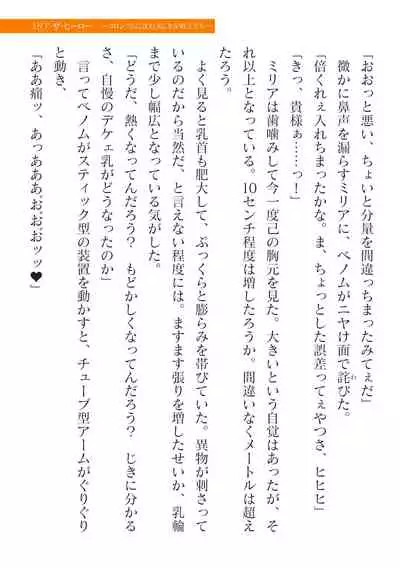 「おおっと悪い、ちょいと分量を間違っちまったみてぇだ」
微かに鼻声を漏らすミリアに、ベノムがニヤけ面で詫びた。
「倍くれぇ入れちまったかな。ま、ちょっとした誤差ってぇやつさ、ヒヒヒ」
「きっ、貴様ぁ……っ！」
ミリアは歯噛みして今一度己の胸元を見た。大きいという自覚はあったが、そ
れ以上となっている。10センチ程度は増したろうか。間違いなくメートルは超え
たろう。
よく見ると乳首も肥大して、ぷっくらと膨らみを帯びていた。異物が刺さって
いるのだから当然だ、と言えない程度には。ますます張りを増したせいか、乳輪
まで少し幅広となっている気がした。
「どうだ、熱くなってんだろう？　もどかしくなってんだろう？　じきに分かる
さ、自慢のデケェ乳がどうなったのか」
言ってベノムがスティック型の装置を動かすと、チューブ型アームがぐりぐり
と動き、
「ああ痛ッ、あっあああぉおぉおッッ♥」